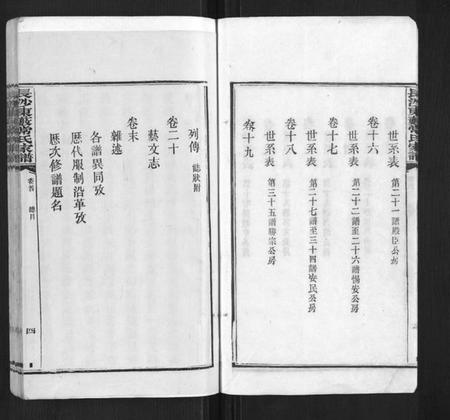 世系表 第二十一譜殿臣公房
卷十六
世系表 第二十二譜至二十六譜惕安公房
卷十七
世系表 第二十七譜至三十四譜安民公房
卷十八
世系表 第三十五譜聯宗公房
卷十九
列傳 誌狀附
卷二十
藝文志
卷末
雜述
各譜異同攷
歷代服制沿革攷
歷次修譜題名
卷首 總目
四